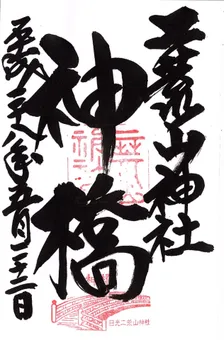 二荒山神社
神橋
平成二十八年五月二十二日
日光二荒山神社